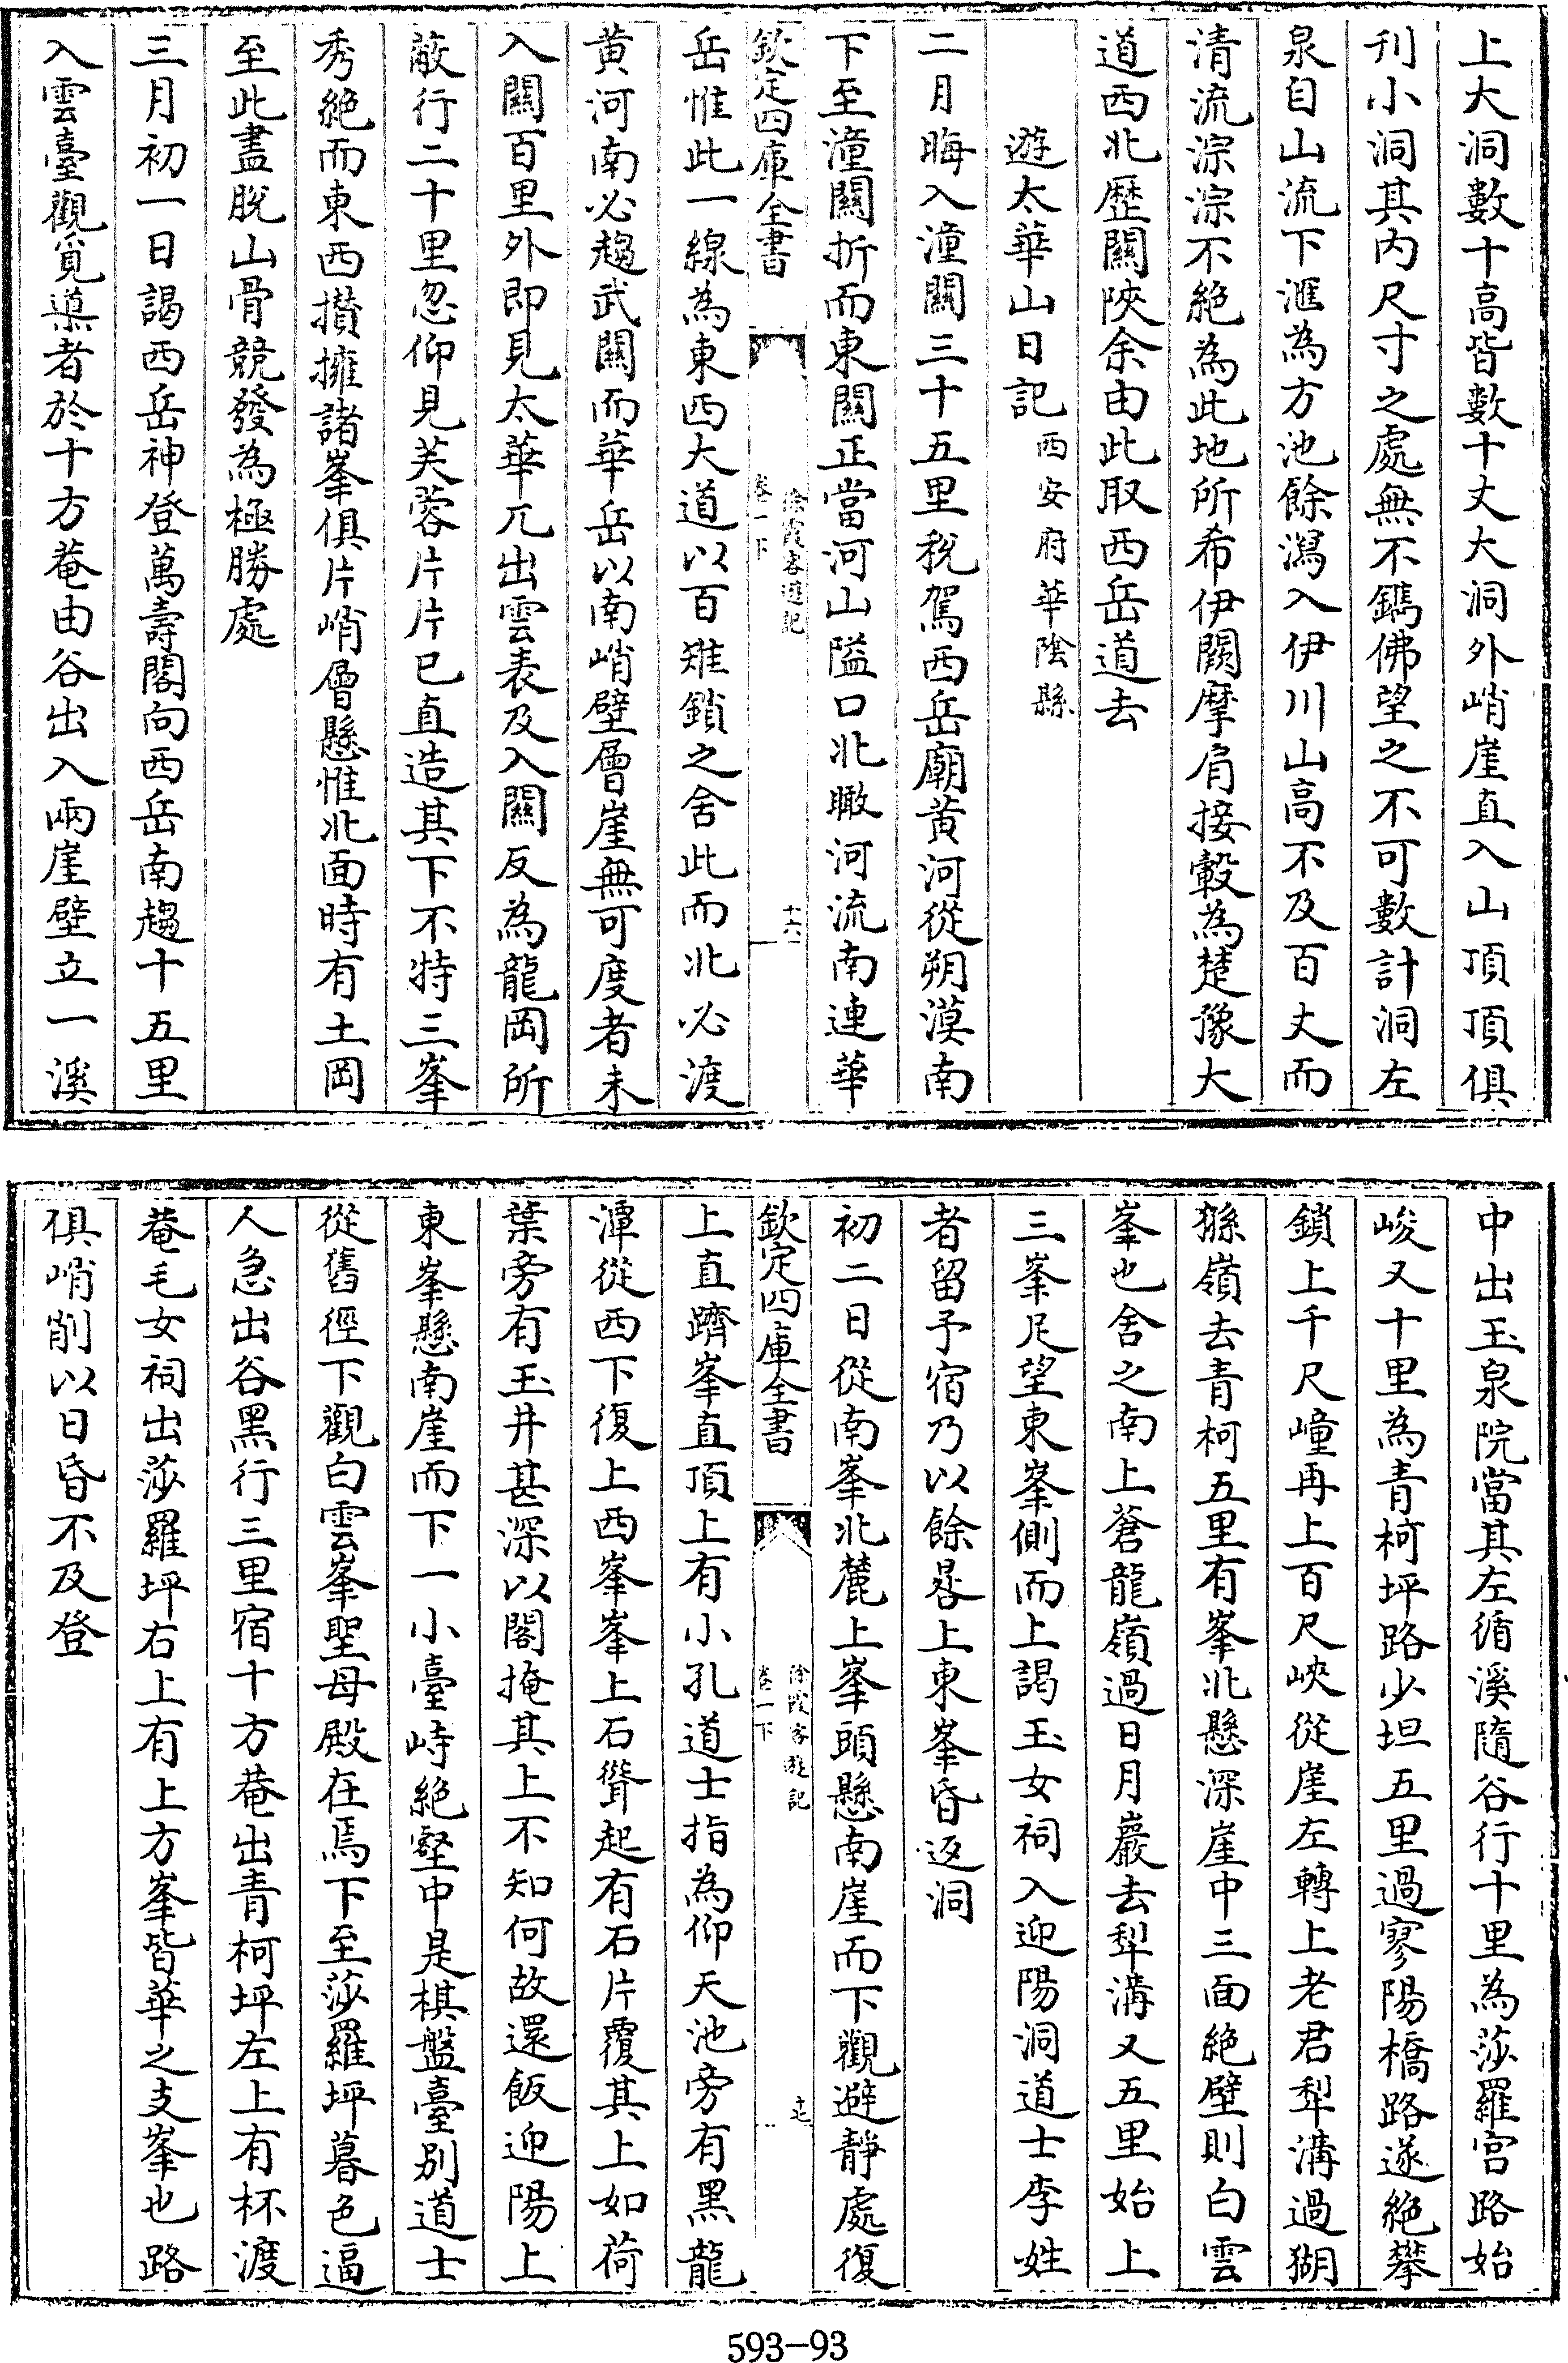 上大洞數十高皆數十丈大洞外峭崖直入山頂頂俱
刋小洞其内尺寸之處無不鐫佛望之不可數計洞左
泉自山流下滙為方池餘瀉入伊川山高不及百丈而
清流淙淙不絶為此地所希伊闕摩肩接轂為楚豫大
道西北歴關陜余由此取西岳道去
遊太華山日記西安府華隂縣
二月晦入潼關三十五里稅駕西岳廟黄河從朔漠南
下至潼關折而東關正當河山隘口北瞰河流南連華
欽定四庫全書
徐霞客遊記
卷一下
十六
岳惟此一線為東西大道以百雉鎖之舍此而北必渡
黄河南必趨武關而華岳以南峭壁層崖無可度者未
入關百里外即見太華兀出雲表及入關反為龍岡所
蔽行二十里忽仰見芙蓉片片已直造其下不特三峯
秀絶而東西攢擁諸峯俱片峭層懸惟北面時有土岡
至此盡脫山骨競發為極勝處
三月初一日謁西岳神登萬壽閣向西岳南趨十五里
入雲臺觀覓導者於十方菴由谷出入兩崖壁立一溪
中出玉泉院當其左循溪隨谷行十里為莎羅宫路始
峻又十里為青柯坪路少坦五里過寥陽橋路遂絶攀
鎖上千尺㠉再上百尺峽從崖左轉上老君犁溝過猢
猻嶺去青柯五里有峯北懸深崖中三面絶壁則白雲
峯也舍之南上蒼龍嶺過日月巖去犁溝又五里始上
三峯足望東峯側而上謁玉女祠入迎陽洞道士李姓
者留予宿乃以餘晷上東峯昏返洞
初二日從南峯北麓上峯頭懸南崖而下觀避靜處復
欽定四庫全書
徐霞客遊記
卷一下
十七
上直躋峯直頂上有小孔道士指為仰天池旁有黑龍
潭從西下復上西峯峯上石聳起有石片覆其上如荷
葉旁有玉井甚深以閣掩其上不知何故還飯迎陽上
東峯懸南崖而下一小臺峙絶壑中是棋盤臺别道士
從舊徑下觀白雲峯聖母殿在焉下至莎羅坪暮色逼
人急出谷黑行三里宿十方菴出青柯坪左上有杯渡
菴毛女祠出莎羅坪右上有上方峯皆華之支峯也路
俱峭削以日昏不及登
593-93